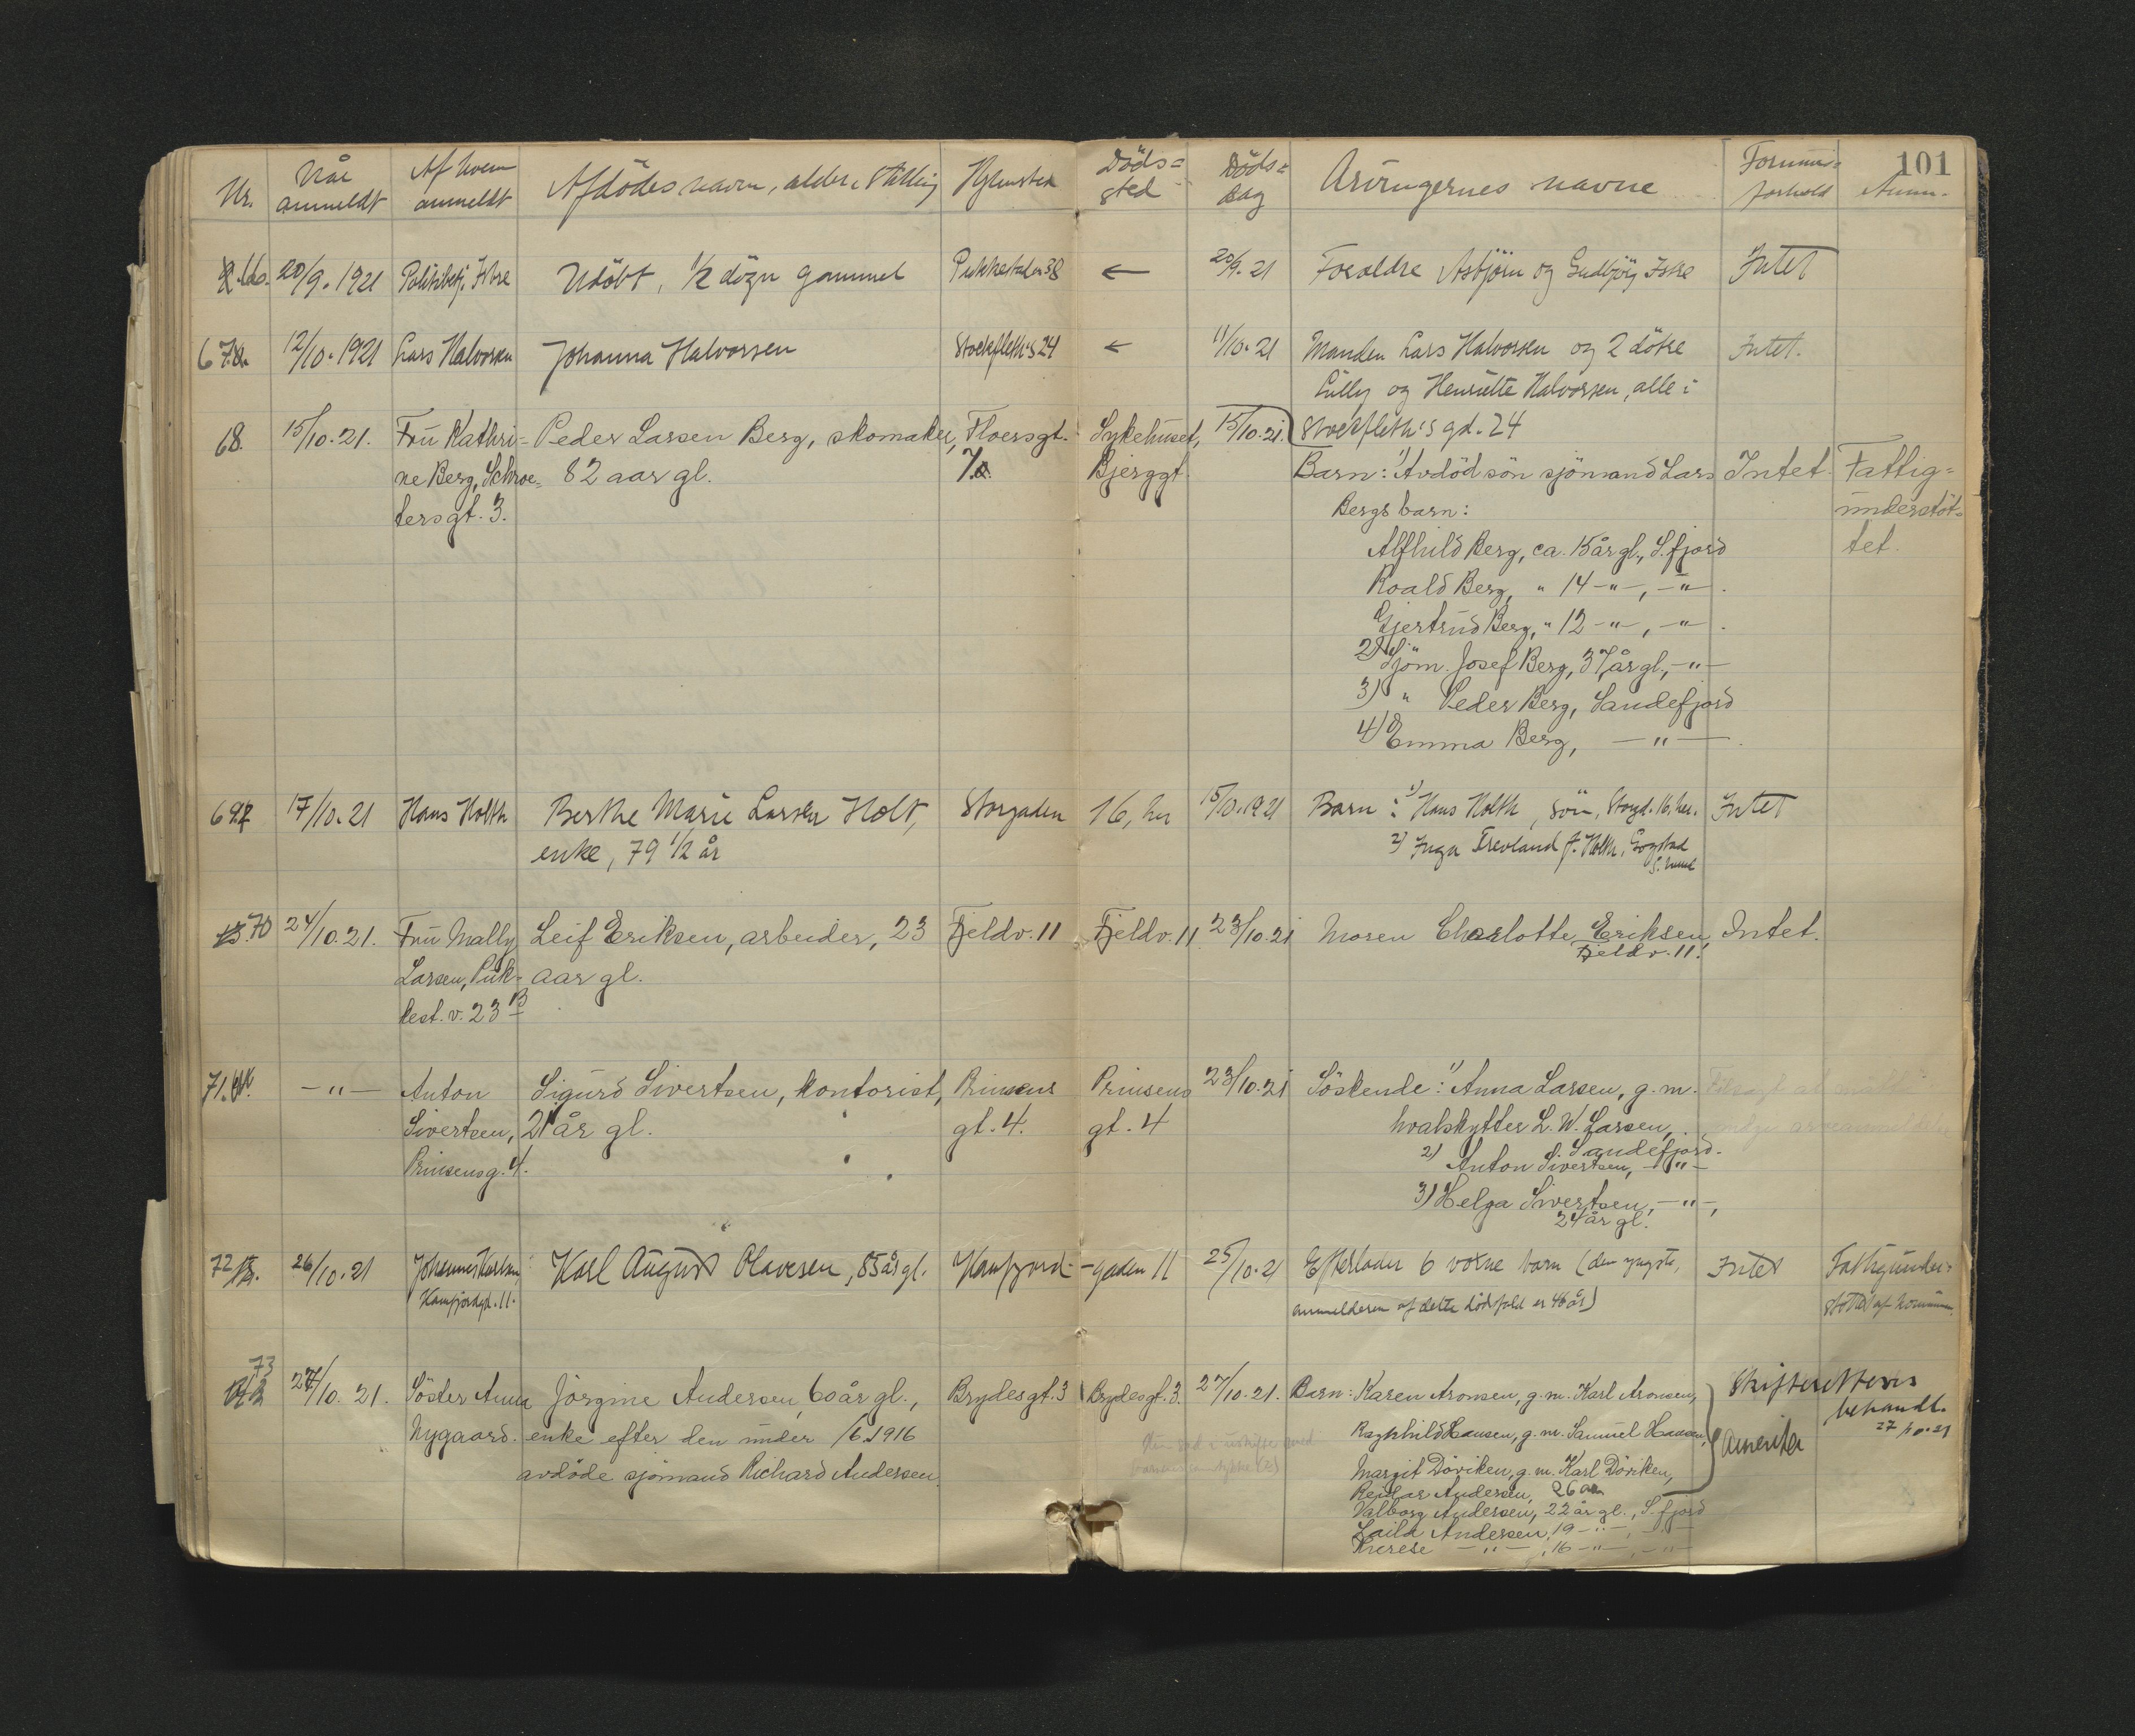 101
Nr.
Når anmeldt
Af hvem anmeldt
Afdödes navn, alder, stilling
Hjemsted
Döds=sted
Döds=dag
Arvingernes navne
Formues=forhold
Anm.
66. 20/9. 1921 Politibetj. Udöbt, 1/2 dögn gammel Pukkestadv. 38 ← 20/9. 21 Forældre Asbjörn og Gudbjörg Intet
67. 12/10. 1921 Lars Halvorsen Johanna Halvorsen Stockfleth's 24 ← 11/10. 21 Manden Lars Halvorsen og 2 dötre Intet.
Lilly og Henriette Halvorsen, alle i
Stockfleth's gd. 24
68. 15/10. 21. Fru Kathri= Peder Larsen Berg, skomaker, Floersgt. Sykehuset, 15/10. 21.
ne Berg, Schroe= 82 aar gl. 7a. Bjerggt. Barn: 1) Avdöd sön sjömand Lars Intet. Fattig=
tersgt. 3. Bergs barn: understöt=
Alfhild Berg, ca. 15 år gl., S.fjord tet.
Roald Berg, " 14 -"-, -"-.
Gjertrud Berg, " 12 -"-, -"-.
2) Sjöm. Josef Berg, 37 år gl., -"-
3) " Peder Berg, Sandefjord
4) Emma Berg, -"-.
69. 17/10. 21 Hans Holth Berthe Marie Larsen Holt, Storgaden 16, her 15/10. 1921 Barn: 1) Hans Holth, sön, Storgd. 16, her. Intet
enke, 79 1/2 år 2) Inga Trevland f. Holth, Gogstad
70 24/10. 21. Fru Mally Leif Eriksen, arbeider, 23 Fjeldv. 11 Fjeldv. 11 23/10. 21 Moren Charlotte Eriksen, Intet.
Larsen, Puk= aar gl. Fjeldv. 11.
kest. v. 23 B
71. -"- Anton Sigurd Sivertsen, kontorist, Prinsens Prinsens 23/10. 21 Söskende: 1) Anna Larsen, g. m.
Sivertsen, 21 år gl. gt. 4. gt. 4 hvalskytter L. W. Larsen,
Prinsensg. 4. Sandefjord.
2) Anton Sivertsen, -"-
3) Helga Sivertsen, -"-,
24 år gl.
72 26/10. 21 Johannes Karlsen Karl August Olavesen, 85 år gl. Kamfjord- -gaden 11 25/10. 21 Efterlader 6 voxne barn (den yngste, Intet Fattigunder=
Kamfjordgd. 11. anmelderen af dette dödsfald er 46 år) stöttet af kommunen.
73 27/10. 21. Söster Anna Jörgine Andersen, 60 år gl., Brydesgt. 3 Brydesgt. 3. 27/10. 21. Barn: Karen Aronsen, g. m. Karl Aronsen, Skifterettens
Nygaard. enke efter den under /6. 1916 Ragnhild Hansen, g. m. Samuel Hansen, Amerika behandl.
27/10. 21
avdöde sjömand Richard Andersen. Margit Döviken, g. m. Karl Döviken,
Reidar Andersen, 26 år
Valborg Andersen, 22 år gl., S.fjord
Laila Andersen, 19 -"-, -"-
Therese -"-, 16 -"-, -"-